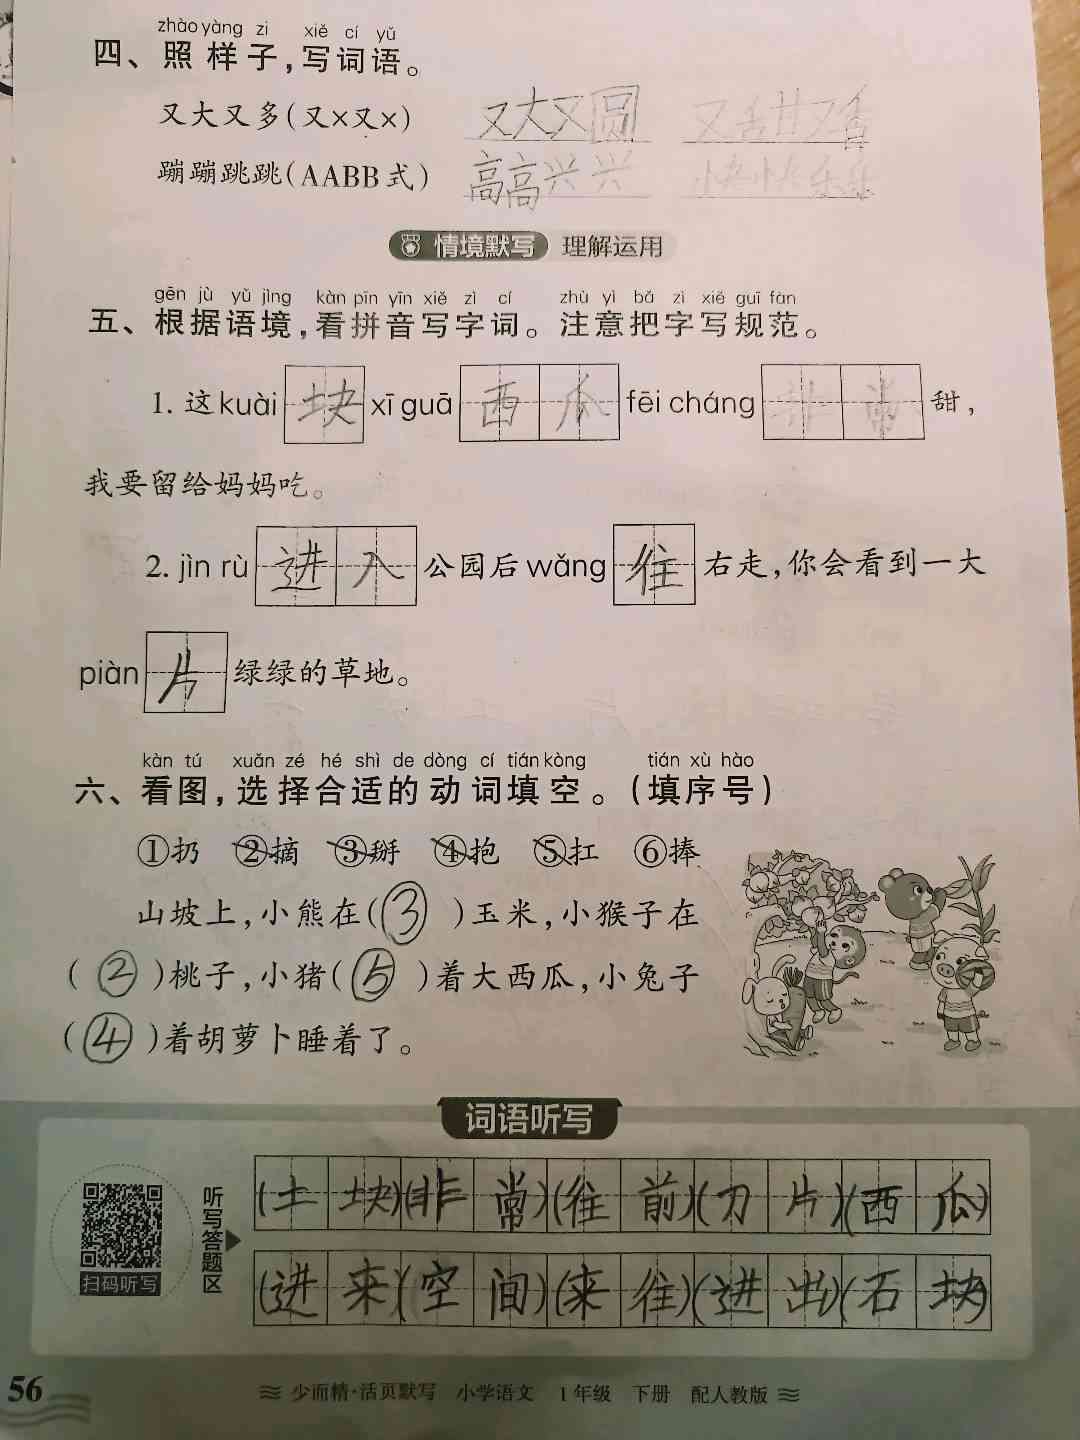 zhào yàng zi xiě cí yǔ
四、照样子，写词语。
又大又多(又×又×) 又大又圆 又舌甘又香
蹦蹦跳跳(AABB式) 高高兴兴 快快乐乐
情境默写 理解运用
gēn jù yǔ jìng kàn pīn yīn xiě zì cí zhù yì bǎ zì xiě guī fàn
五、根据语境，看拼音写字词。注意把字写规范。
1. 这kuài 块 xī guā 西瓜 fēi cháng 非常 甜，
我要留给妈妈吃。
2. jìn rù 进入 公园后wǎng 往 右走，你会看到一大
piàn 片 绿绿的草地。
kàn tú xuǎn zé hé shì de dòng cí tián kòng tián xù hào
六、看图，选择合适的动词填空。(填序号)
①扔 ②摘 ③掰 ④抱 ⑤扛 ⑥捧
山坡上，小熊在(③)玉米，小猴子在
(②)桃子，小猪(⑤)着大西瓜，小兔子
(④)着胡萝卜睡着了。
词语听写
扫码听写
听写答题区
(土块)(非常)(往前)(刀片)(西瓜)
(进来)(空间)(来往)(进出)(石块)
56 少而精·活页默写 小学语文 1年级 下册 配人教版